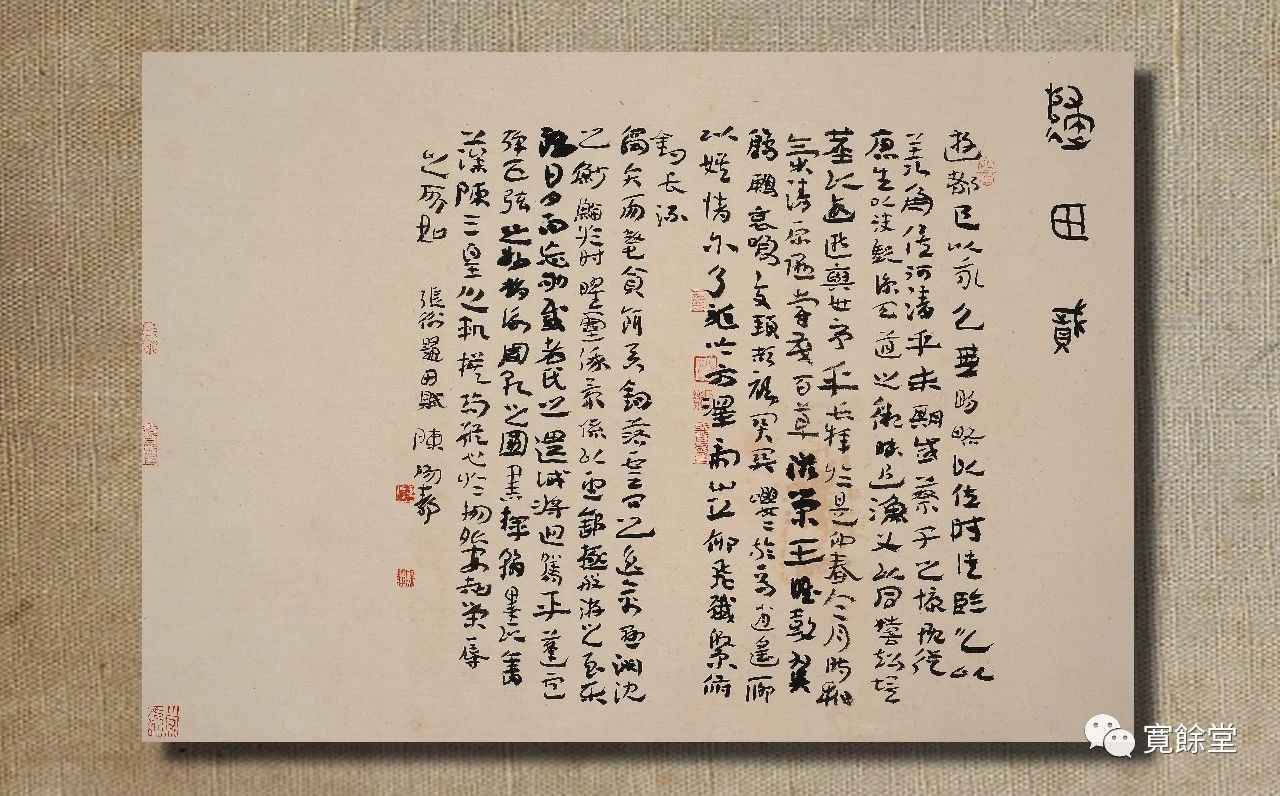 歸田賦
遊都邑以永久無明略以佐時徒臨川以
羨魚俟河清乎未期感蔡子之慷慨從
唐生以決疑諒天道之微昧追漁父以同嬉超埃
塵以遐逝與世事乎長辭於是仲春令月時和
氣清原隰鬱茂百草滋榮王雎鼓翼
鶬鶊哀鳴交頸頡頏關關嚶嚶於焉逍遙聊
以娛情爾乃龍吟方澤虎嘯山丘仰飛纖繳俯
釣長流
觸矢而斃貪餌吞鉤落雲間之逸禽懸淵沈
之魦鰡於時曜靈俄景係以望舒極般游之至樂
雖日夕而忘劬感老氏之遺誡將迴駕乎蓬廬
彈五弦之妙指詠周孔之圖書揮翰墨以奮
藻陳三皇之軌模苟縱心於物外安知榮辱
之所如 張衡歸田賦 陳陽靜
寬餘堂